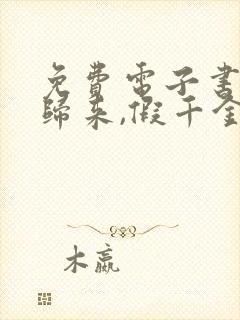 免費電子書
歸來,假千金
木嬴